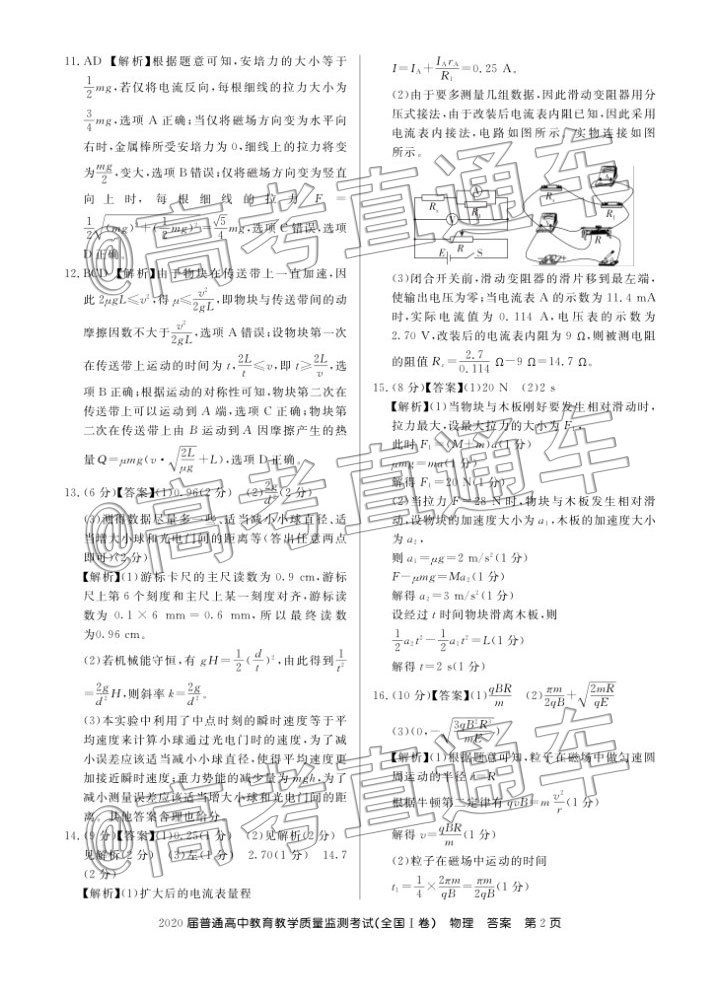 11. AD 【解析】根据题意可知,安培力的大小等于
1/2 mg,若仅将电流反向,每根细线的拉力大小为
3/4 mg,选项 A 正确;当仅将磁场方向变为水平向
右时,金属棒所受安培力为 0,细线上的拉力将变
为 mg/2,变大,选项 B 错误;仅将磁场方向变为竖直
向上时,每根细线的拉力 F =
1/2 √((mg)²+(1/2 mg)²)=√5/4 mg,选项 C 错误,选项
D 正确。
12. BCD 【解析】由于物块在传送带上一直加速,因
此 2μgL≤v²,得 μ≤v²/2gL,即物块与传送带间的动
摩擦因数不大于 v²/2gL,选项 A 错误;设物块第一次
在传送带上运动的时间为 t,2L/t≤v,即 t≥2L/v,选
项 B 正确;根据运动的对称性可知,物块第二次在
传送带上可以运动到 A 端,选项 C 正确;物块第
二次在传送带上由 B 运动到 A 因摩擦产生的热
量 Q=μmg(v·√(2L/μg)+L),选项 D 正确。
13. (6 分)【答案】(1)0.96(2 分) (2)2g/d²(2 分)
(3)测得数据尽量多一些、适当减小小球直径、适
当增大小球和光电门间的距离等(答出任意两点
即可)(2 分)
【解析】(1)游标卡尺的主尺读数为 0.9 cm,游标
尺上第 6 个刻度和主尺上某一刻度对齐,游标读
数为 0.1×6 mm=0.6 mm,所以最终读数
为0.96 cm。
(2)若机械能守恒,有 gH=1/2(d/t)²,由此得到 1/t²
=2g/d² H,则斜率 k=2g/d²。
(3)本实验中利用了中点时刻的瞬时速度等于平
均速度来计算小球通过光电门时的速度,为了减
小误差应该适当减小小球直径,使得平均速度更
加接近瞬时速度;重力势能的减少量为 mgh,为了
减小测量误差应该适当增大小球和光电门间的距
离。其他答案合理也给分。
14. (9 分)【答案】(1)0.25(1 分) (2)见解析(2 分)
见解析(2 分) (3)左(1 分) 2.70(1 分) 14.7
(2 分)
【解析】(1)扩大后的电流表量程
I=I_A+I_A r_A/R₁=0.25 A。
(2)由于要多测量几组数据,因此滑动变阻器用分
压式接法,由于改装后电流表内阻已知,因此采用
电流表内接法,电路如图所示。实物连接如图
所示。
A
R
E S
(3)闭合开关前,滑动变阻器的滑片移到最左端,
使输出电压为零;当电流表 A 的示数为 11.4 mA
时,实际电流值为 0.114 A,电压表的示数为
2.70 V,改装后的电流表内阻为 9 Ω,则被测电阻
的阻值 Rₓ=2.7/0.114 Ω−9 Ω=14.7 Ω。
15. (8 分)【答案】(1)20 N (2)2 s
【解析】(1)当物块与木板刚好要发生相对滑动时,
拉力最大,设最大拉力的大小为 F₁,
此时 F₁=(M+m)a(1 分)
μmg=ma(1 分)
解得 F₁=20 N(1 分)
(2)当拉力 F=28 N 时,物块与木板发生相对滑
动,设物块的加速度大小为 a₁,木板的加速度大小
为 a₂,
则 a₁=μg=2 m/s²(1 分)
F−μmg=Ma₂(1 分)
解得 a₂=3 m/s²(1 分)
设经过 t 时间物块滑离木板,则
1/2 a₂t²−1/2 a₁t²=L(1 分)
解得 t=2 s(1 分)
16. (10 分)【答案】(1)qBR/m (2)πm/2qB+√(2mR/qE)
(3)(0,−√(3qB²R³/mE))
【解析】(1)根据题意可知,粒子在磁场中做匀速圆
周运动的半径 r=R
根据牛顿第二定律有 qvB=m v²/r(1 分)
解得 v=qBR/m(1 分)
(2)粒子在磁场中运动的时间
t₁=1/4×2πm/qB=πm/2qB(1 分)
2020 届普通高中教育教学质量监测考试(全国Ⅰ卷) 物理 答案 第 2 页
@高考直通车
@高考直通车
@高考直通车